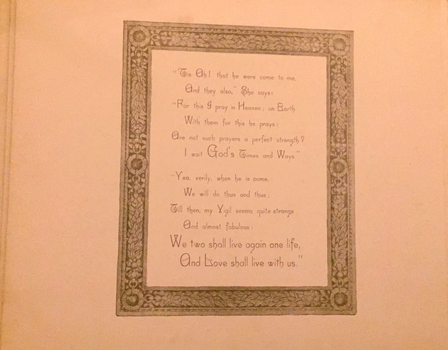 "Tis Oh! that he were come to me,
And they also," She says:
"For this I pray in Heaven; on Earth
With them for this he prays:
Are not such prayers a perfect strength?
I wait God's Times and Ways"
"Yea, verily; when he is come,
We will do thus and thus;
Till then my Vigil seems quite strange
And almost fabulous:
We two shall live again one life,
And Love shall live with us."